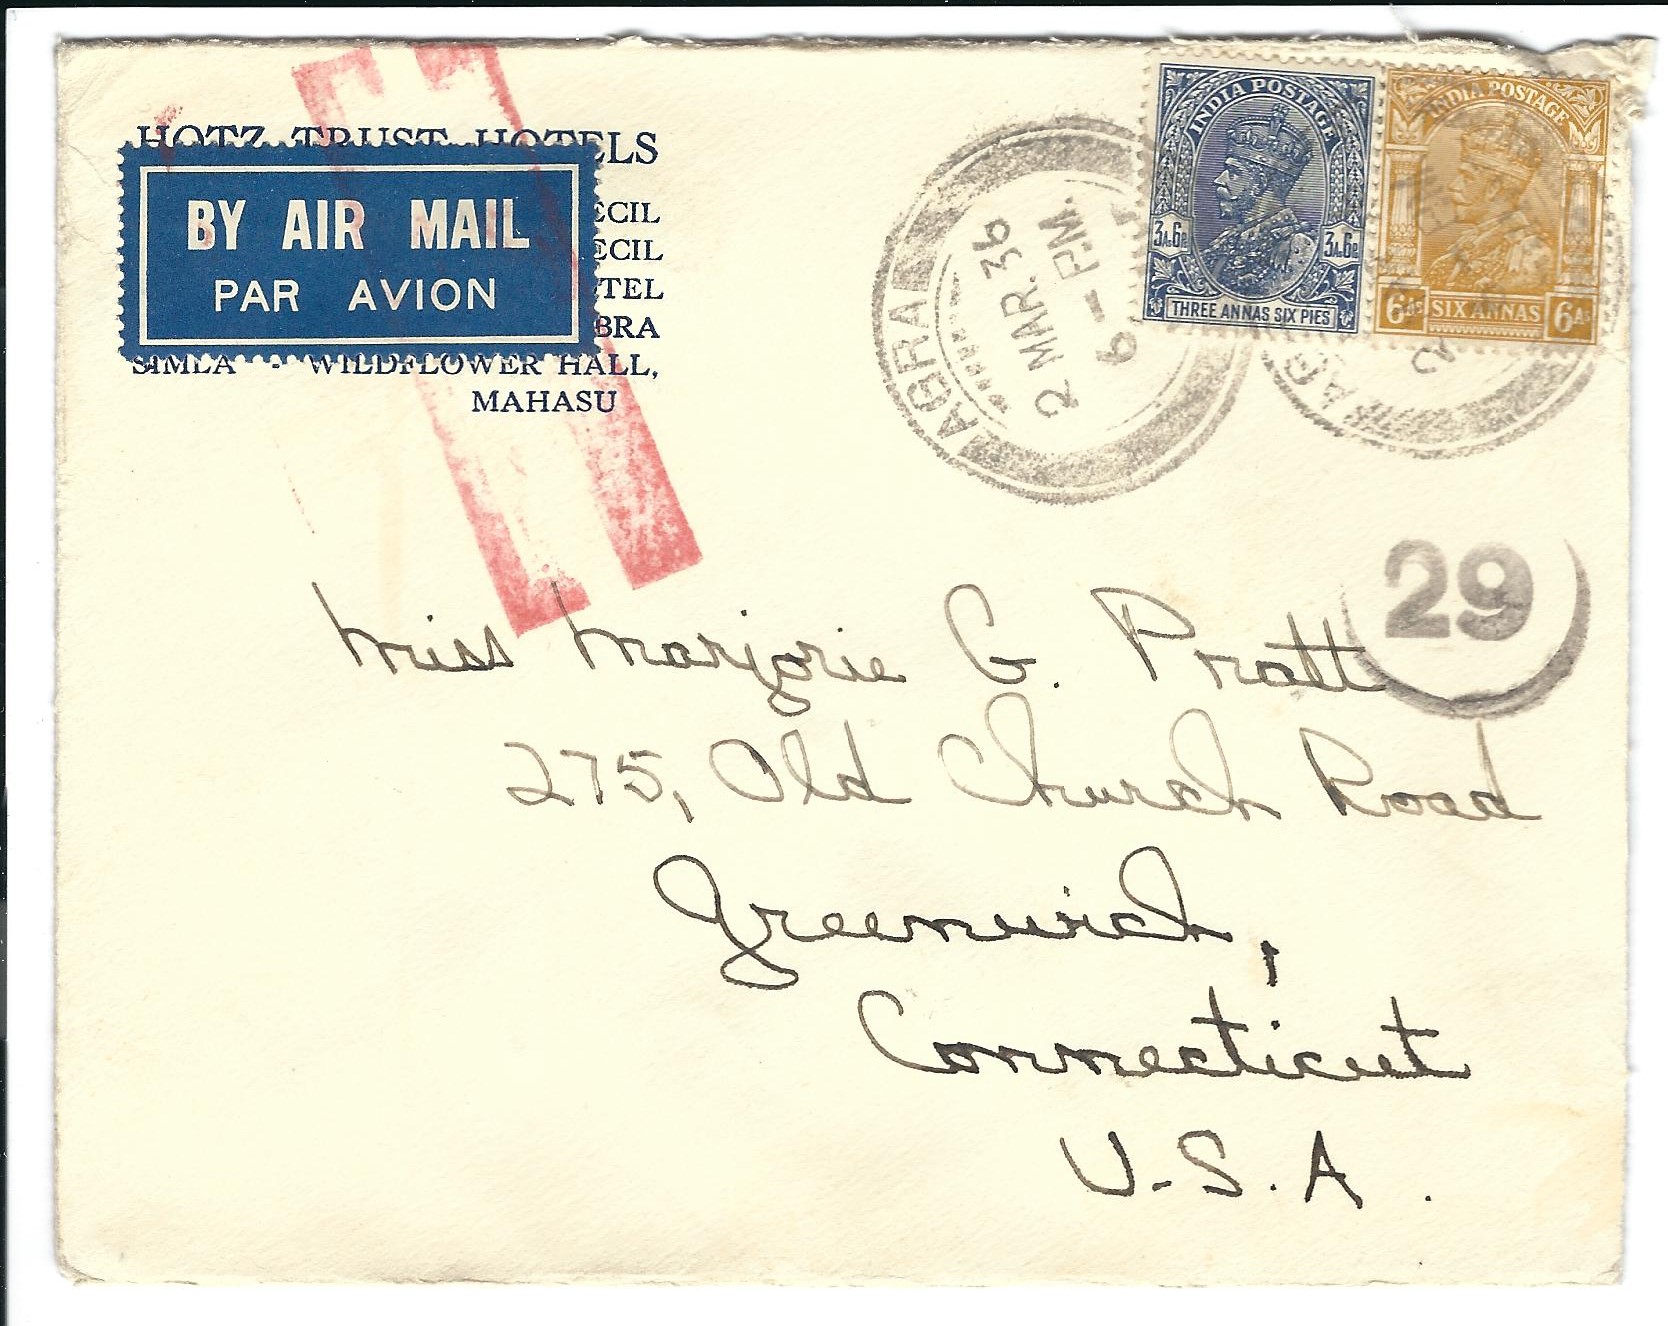 HOTZ TRUST HOTELS
BY AIR MAIL
PAR AVION
ECIL
ECIL
TEL
BRA
SIMLA - WILDFLOWER HALL,
MAHASU
AGRA
2 MAR. 36
6 - P.M.
INDIA POSTAGE
3A.6P. 3A.6P.
THREE ANNAS SIX PIES
INDIA POSTAGE
6As SIX ANNAS 6As
AG
29
Miss Marjorie G. Pratt
275, Old Church Road
Greenwich,
Connecticut
U.S.A.